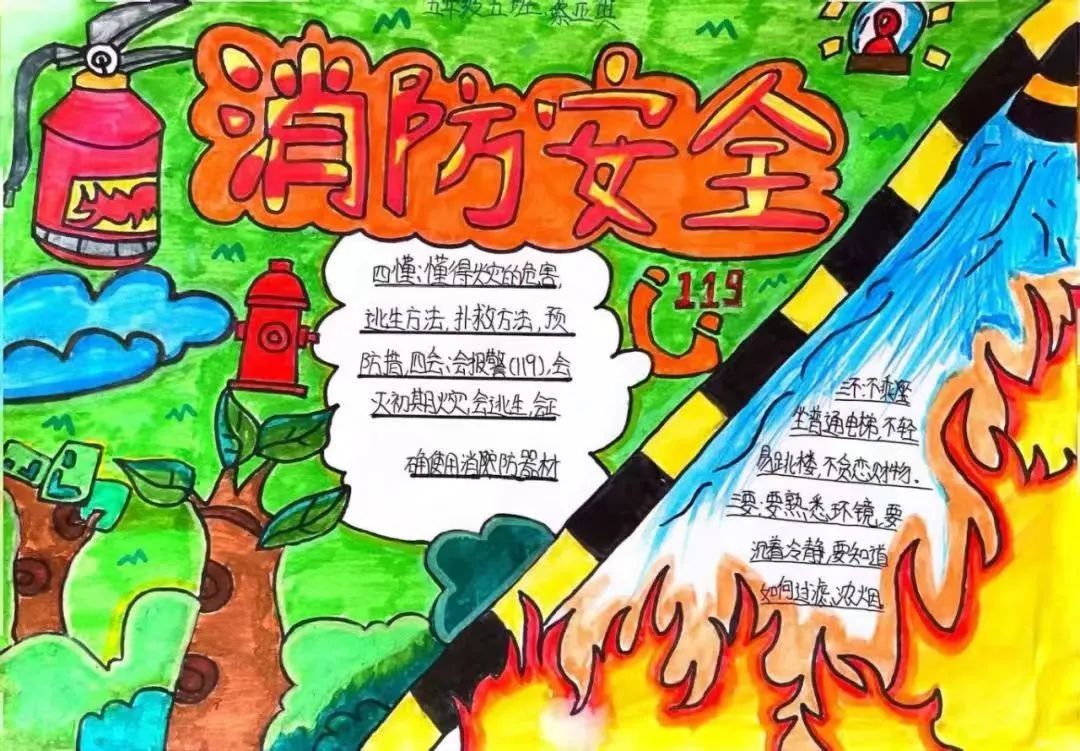 五年级五班
消防安全
119
四懂:懂得火灾的危害,
逃生方法,扑救方法,预
防措,四会:会报警(119),会
灭初期火灾,会逃生,会正
确使用消防防器材
三不:不乘座
坐普通电梯,不轻
易跳楼,不贪恋财物.
三要:要熟悉,环镜,要
沉着冷静,要知道
如何过滤,浓烟.